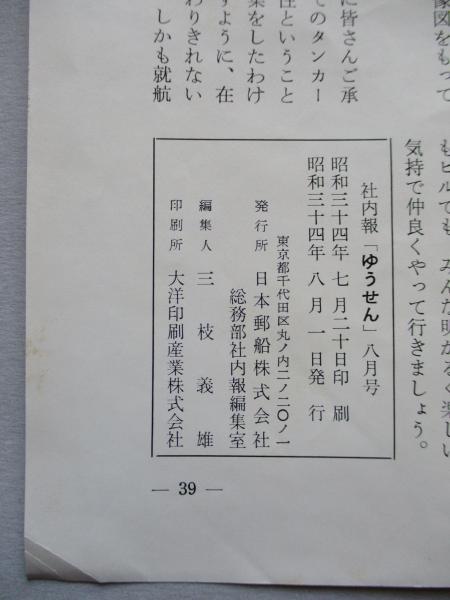 象図をもって
に皆さんご承
てのタンカー
性ということ
業をしたわけ
すように、在
わりきれない
しかも就航
もビルでも、みんな明かるく楽しい
気持で仲良くやって行きましょう。
社内報「ゆうせん」八月号
昭和三十四年 七月二十日印刷
昭和三十四年 八月一日発行
東京都千代田区丸ノ内二ノ二〇ノ一
発行所 日本郵船株式会社
総務部社内報編集室
編集人 三枝義雄
印刷所 大洋印刷産業株式会社
— 39 —